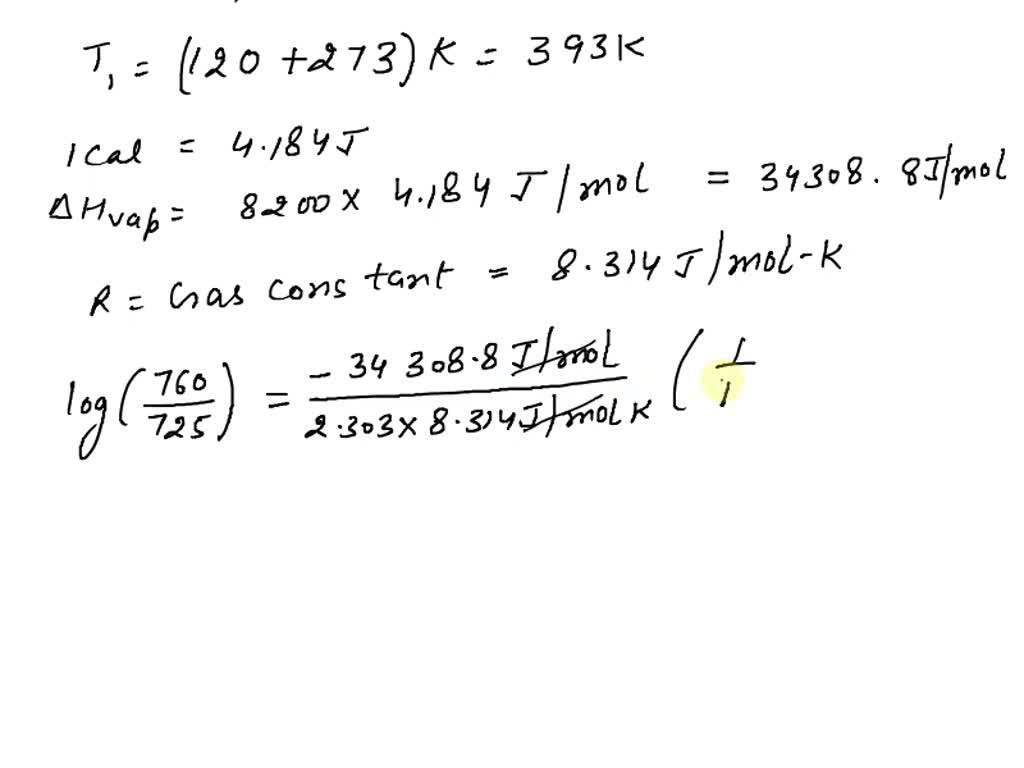 T₁ = (120 + 273) K = 393K
1 Cal = 4.184 J
ΔHvap = 8200 × 4.184 J/mol = 34308.8J/mol
R = Gas constant = 8.314 J/mol-K
log(760/725) = -34308.8 J/mol / 2.303 × 8.314 J/mol K ( 1/